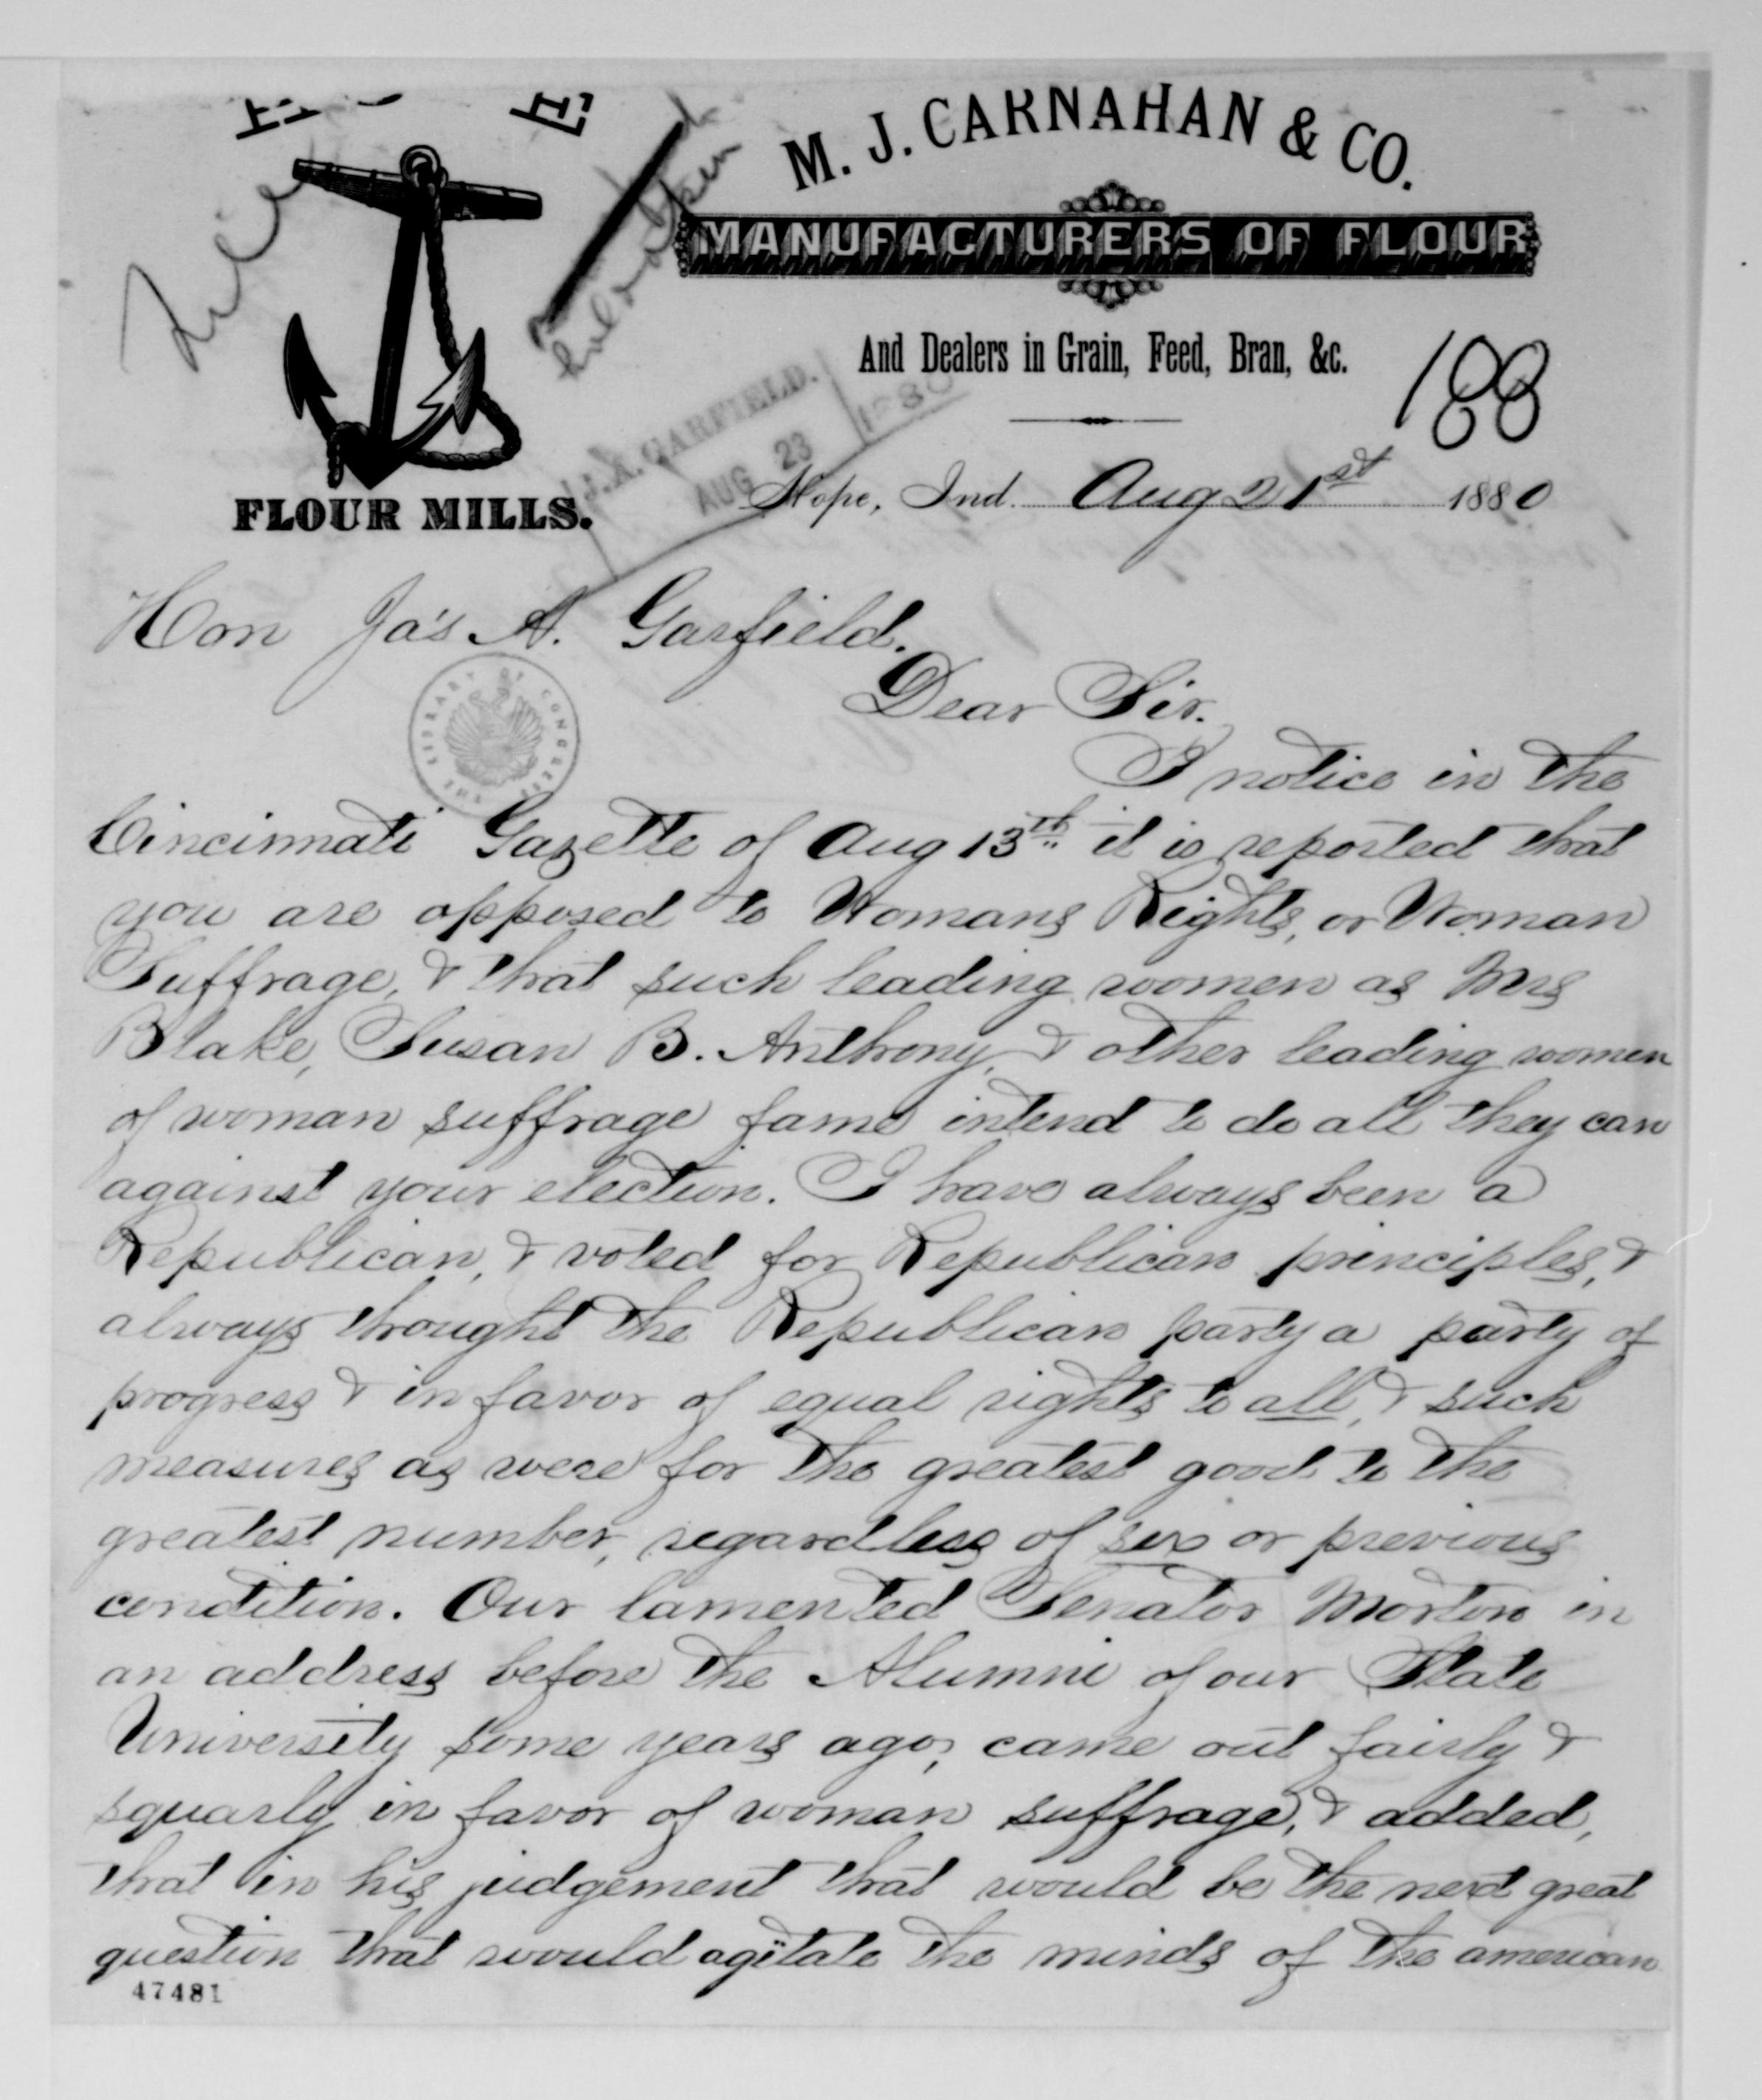 M. J. CARNAHAN & CO.
MANUFACTURERS OF FLOUR
And Dealers in Grain, Feed, Bran, &c.
FLOUR MILLS.
188
J. A. GARFIELD.
AUG 23 1880
Hope, Ind. Aug 21st 1880
Hon Ja's A. Garfield.
THE LIBRARY OF CONGRESS
Dear Sir.
I notice in the
Cincinnati Gazette of Aug 13th it is reported that
you are opposed to Womans Rights, or Woman
Suffrage, & that such leading women as Mrs
Blake, Susan B. Anthony, & other leading women
of woman suffrage fame intend to do all they can
against your election. I have always been a
Republican, & voted for Republican principles, &
always thought the Republican party a party of
progress & in favor of equal rights to all, & such
measures as were for the greatest good to the
greatest number, regardless of sex or previous
condition. Our lamented Senator Morton in
an address before the Alumni of our State
University some years ago, came out fairly &
squarly in favor of woman suffrage, & added,
that in his judgement that would be the next great
question that would agitate the minds of the american
47481